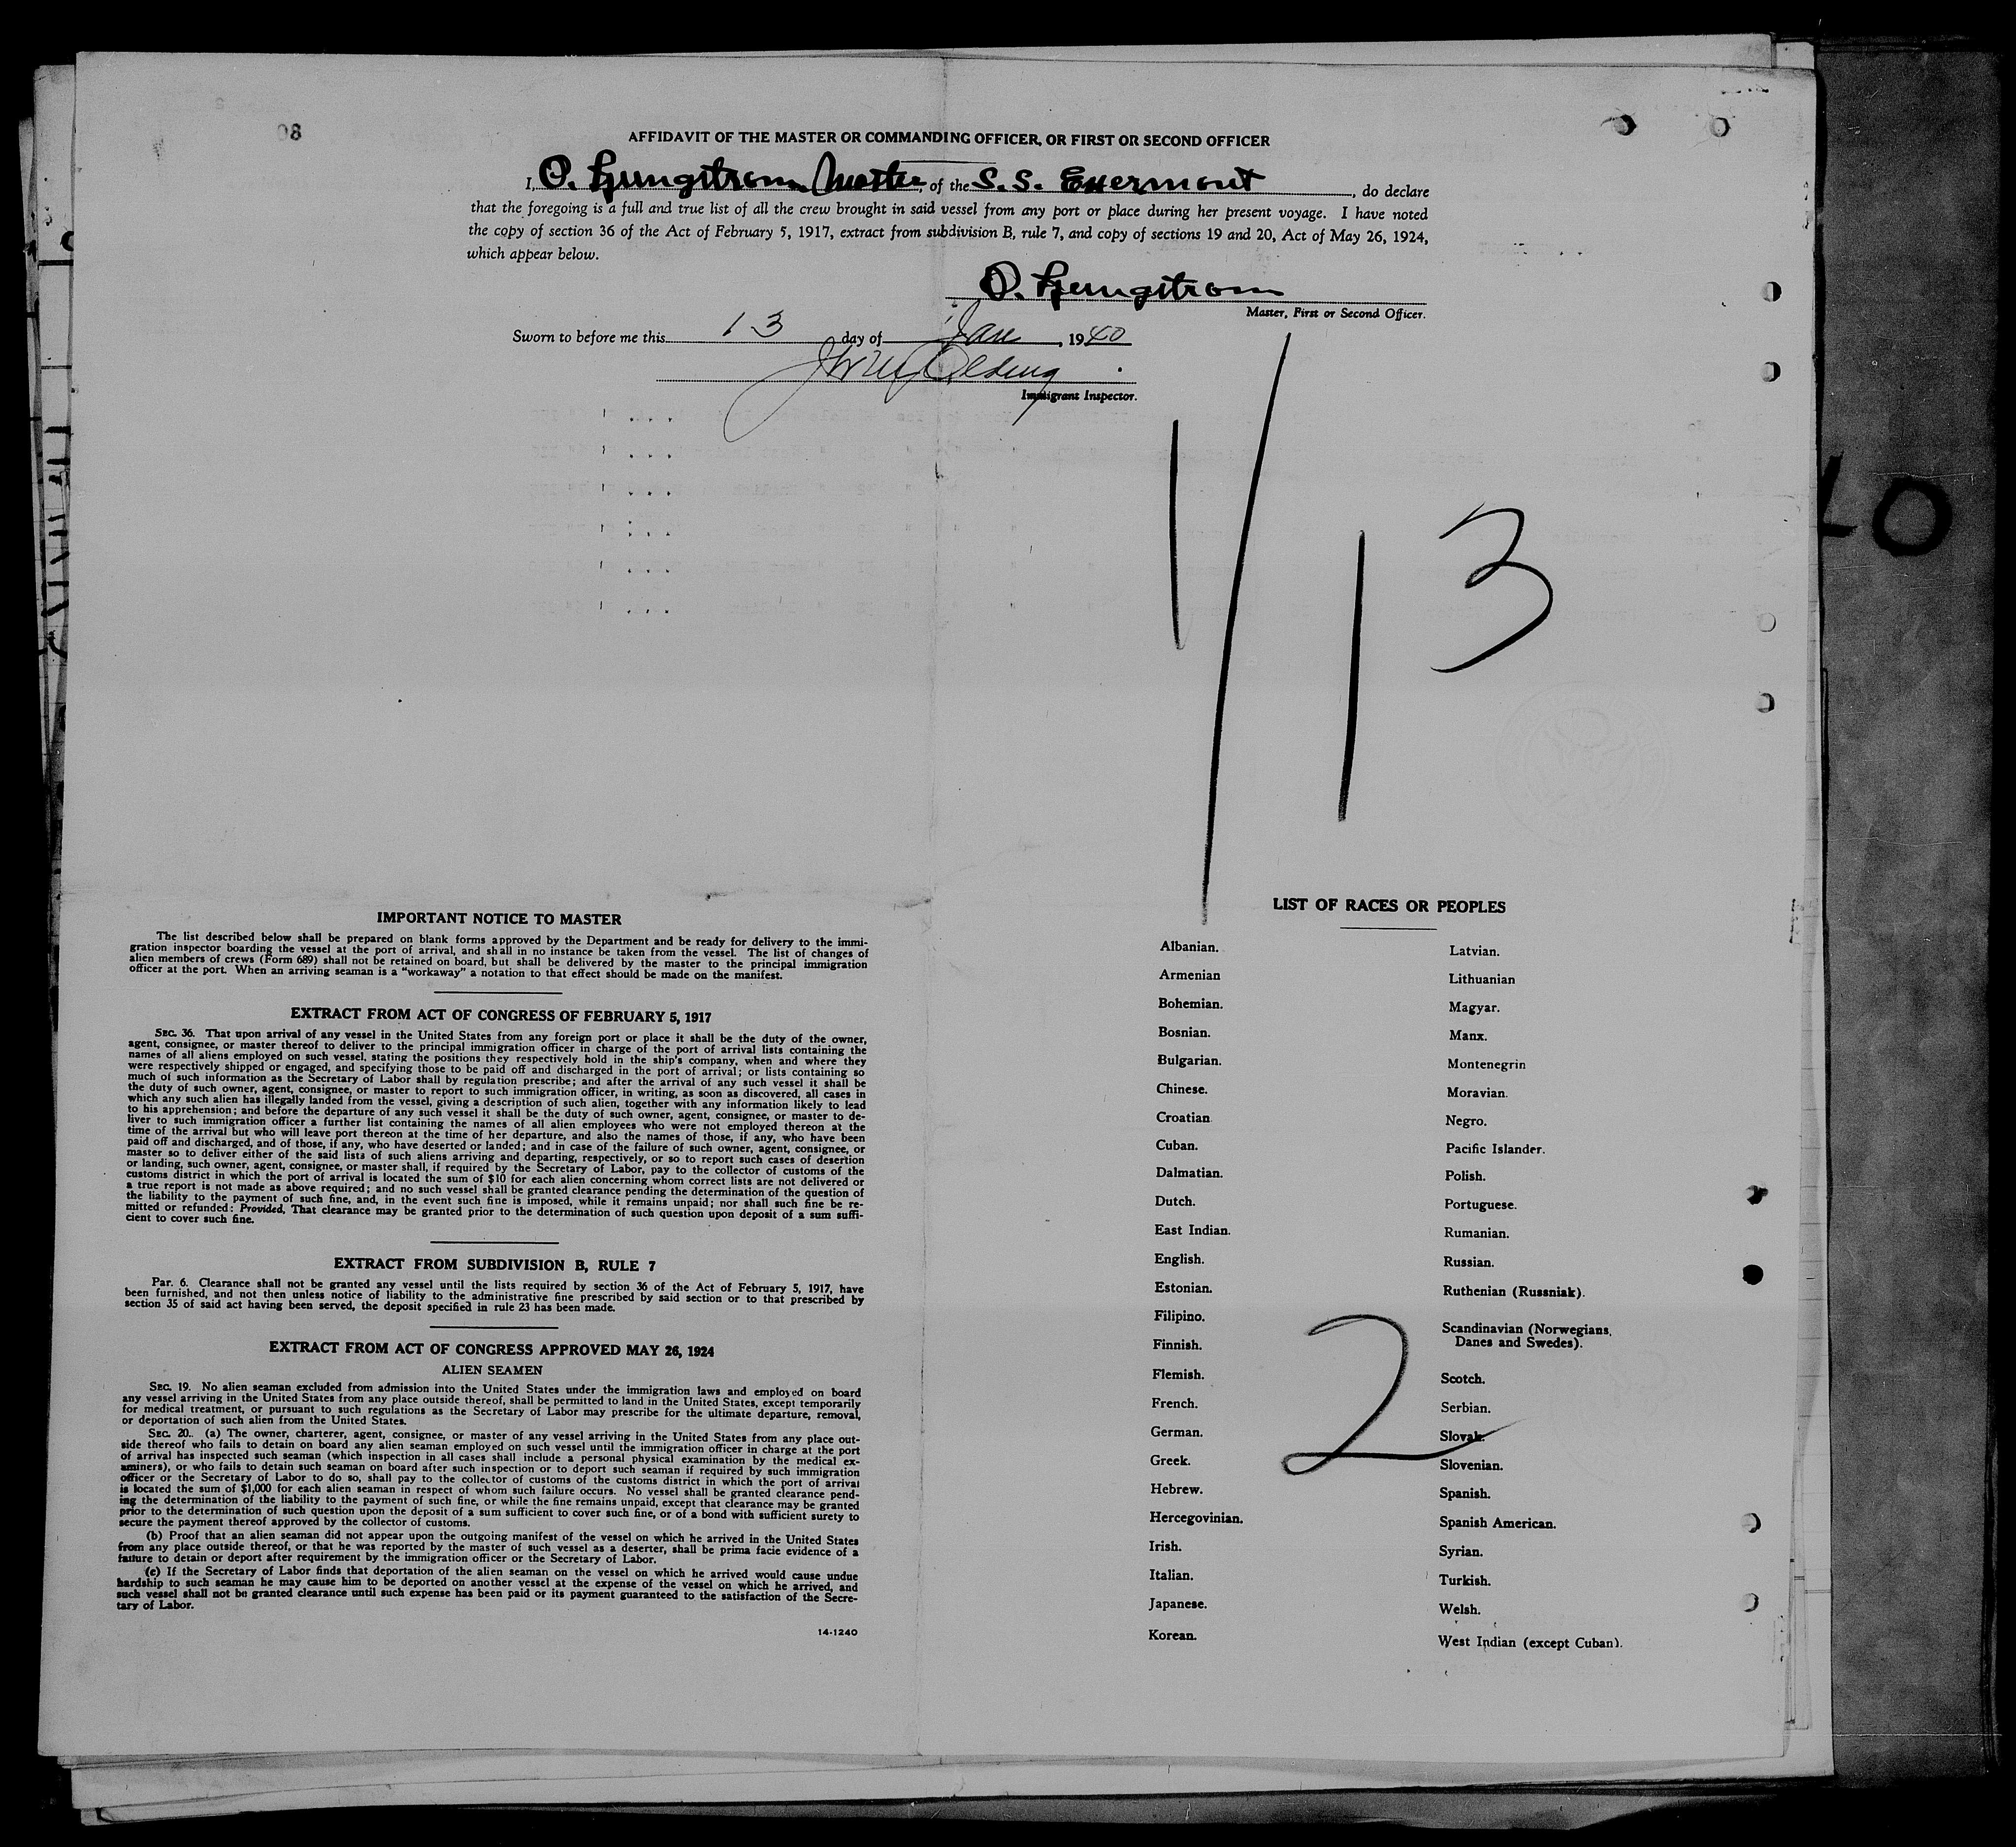 AFFIDAVIT OF THE MASTER OR COMMANDING OFFICER, OR FIRST OR SECOND OFFICER
I, O. Ljungstrom, Master, of the S.S. Exermont, do declare
that the foregoing is a full and true list of all the crew brought in said vessel from any port or place during her present voyage. I have noted
the copy of section 36 of the Act of February 5, 1917, extract from subdivision B, rule 7, and copy of sections 19 and 20, Act of May 26, 1924,
which appear below.
O. Ljungstrom
Master, First or Second Officer.
Sworn to before me this 13 day of Jan, 1940
Immigrant Inspector.
1/13
IMPORTANT NOTICE TO MASTER
The list described below shall be prepared on blank forms approved by the Department and be ready for delivery to the immi-
gration inspector boarding the vessel at the port of arrival, and shall in no instance be taken from the vessel. The list of changes of
alien members of crews (Form 689) shall not be retained on board, but shall be delivered by the master to the principal immigration
officer at the port. When an arriving seaman is a "workaway" a notation to that effect should be made on the manifest.
EXTRACT FROM ACT OF CONGRESS OF FEBRUARY 5, 1917
SEC. 36. That upon arrival of any vessel in the United States from any foreign port or place it shall be the duty of the owner,
agent, consignee, or master thereof to deliver to the principal immigration officer in charge of the port of arrival lists containing the
names of all aliens employed on such vessel, stating the positions they respectively hold in the ship's company, when and where they
were respectively shipped or engaged, and specifying those to be paid off and discharged in the port of arrival; or lists containing so
much of such information as the Secretary of Labor shall by regulation prescribe; and after the arrival of any such vessel it shall be
the duty of such owner, agent, consignee, or master to report to such immigration officer, in writing, as soon as discovered, all cases in
which any such alien has illegally landed from the vessel, giving a description of such alien, together with any information likely to lead
to his apprehension; and before the departure of any such vessel it shall be the duty of such owner, agent, consignee, or master to de-
liver to such immigration officer a further list containing the names of all alien employees who were not employed thereon at the
time of the arrival but who will leave port thereon at the time of her departure, and also the names of those, if any, who have been
paid off and discharged, and of those, if any, who have deserted or landed; and in case of the failure of such owner, agent, consignee, or
master so to deliver either of the said lists of such aliens arriving and departing, respectively, or so to report such cases of desertion
or landing, such owner, agent, consignee, or master shall, if required by the Secretary of Labor, pay to the collector of customs of the
customs district in which the port of arrival is located the sum of $10 for each alien concerning whom correct lists are not delivered or
a true report is not made as above required; and no such vessel shall be granted clearance pending the determination of the question of
the liability to the payment of such fine, and, in the event such fine is imposed, while it remains unpaid; nor shall such fine be re-
mitted or refunded: Provided, That clearance may be granted prior to the determination of such question upon deposit of a sum suffi-
cient to cover such fine.
EXTRACT FROM SUBDIVISION B, RULE 7
Par. 6. Clearance shall not be granted any vessel until the lists required by section 36 of the Act of February 5, 1917, have
been furnished, and not then unless notice of liability to the administrative fine prescribed by said section or to that prescribed by
section 35 of said act having been served, the deposit specified in rule 23 has been made.
EXTRACT FROM ACT OF CONGRESS APPROVED MAY 26, 1924
ALIEN SEAMEN
SEC. 19. No alien seaman excluded from admission into the United States under the immigration laws and employed on board
any vessel arriving in the United States from any place outside thereof, shall be permitted to land in the United States, except temporarily
for medical treatment, or pursuant to such regulations as the Secretary of Labor may prescribe for the ultimate departure, removal,
or deportation of such alien from the United States.
SEC. 20. (a) The owner, charterer, agent, consignee, or master of any vessel arriving in the United States from any place out-
side thereof who fails to detain on board any alien seaman employed on such vessel until the immigration officer in charge at the port
of arrival has inspected such seaman (which inspection in all cases shall include a personal physical examination by the medical ex-
aminers), or who fails to detain such seaman on board after such inspection or to deport such seaman if required by such immigration
officer or the Secretary of Labor to do so, shall pay to the collector of customs of the customs district in which the port of arrival
is located the sum of $1,000 for each alien seaman in respect of whom such failure occurs. No vessel shall be granted clearance pend-
ing the determination of the liability to the payment of such fine, or while the fine remains unpaid, except that clearance may be granted
prior to the determination of such question upon the deposit of a sum sufficient to cover such fine, or of a bond with sufficient surety to
secure the payment thereof approved by the collector of customs.
(b) Proof that an alien seaman did not appear upon the outgoing manifest of the vessel on which he arrived in the United States
from any place outside thereof, or that he was reported by the master of such vessel as a deserter, shall be prima facie evidence of a
failure to detain or deport after requirement by the immigration officer or the Secretary of Labor.
(c) If the Secretary of Labor finds that deportation of the alien seaman on the vessel on which he arrived would cause undue
hardship to such seaman he may cause him to be deported on another vessel at the expense of the vessel on which he arrived, and
such vessel shall not be granted clearance until such expense has been paid or its payment guaranteed to the satisfaction of the Secre-
tary of Labor.
14-1240
LIST OF RACES OR PEOPLES
Albanian.
Armenian
Bohemian.
Bosnian.
Bulgarian.
Chinese.
Croatian
Cuban.
Dalmatian.
Dutch.
East Indian.
English.
Estonian.
Filipino.
Finnish.
Flemish.
French.
German.
Greek.
Hebrew.
Hercegovinian.
Irish.
Italian.
Japanese.
Korean.
Latvian.
Lithuanian
Magyar.
Manx.
Montenegrin
Moravian.
Negro.
Pacific Islander.
Polish.
Portuguese.
Rumanian.
Russian.
Ruthenian (Russniak).
Scandinavian (Norwegians,
Danes and Swedes).
Scotch.
Serbian.
Slovak.
Slovenian.
Spanish.
Spanish American.
Syrian.
Turkish.
Welsh.
West Indian (except Cuban).
2